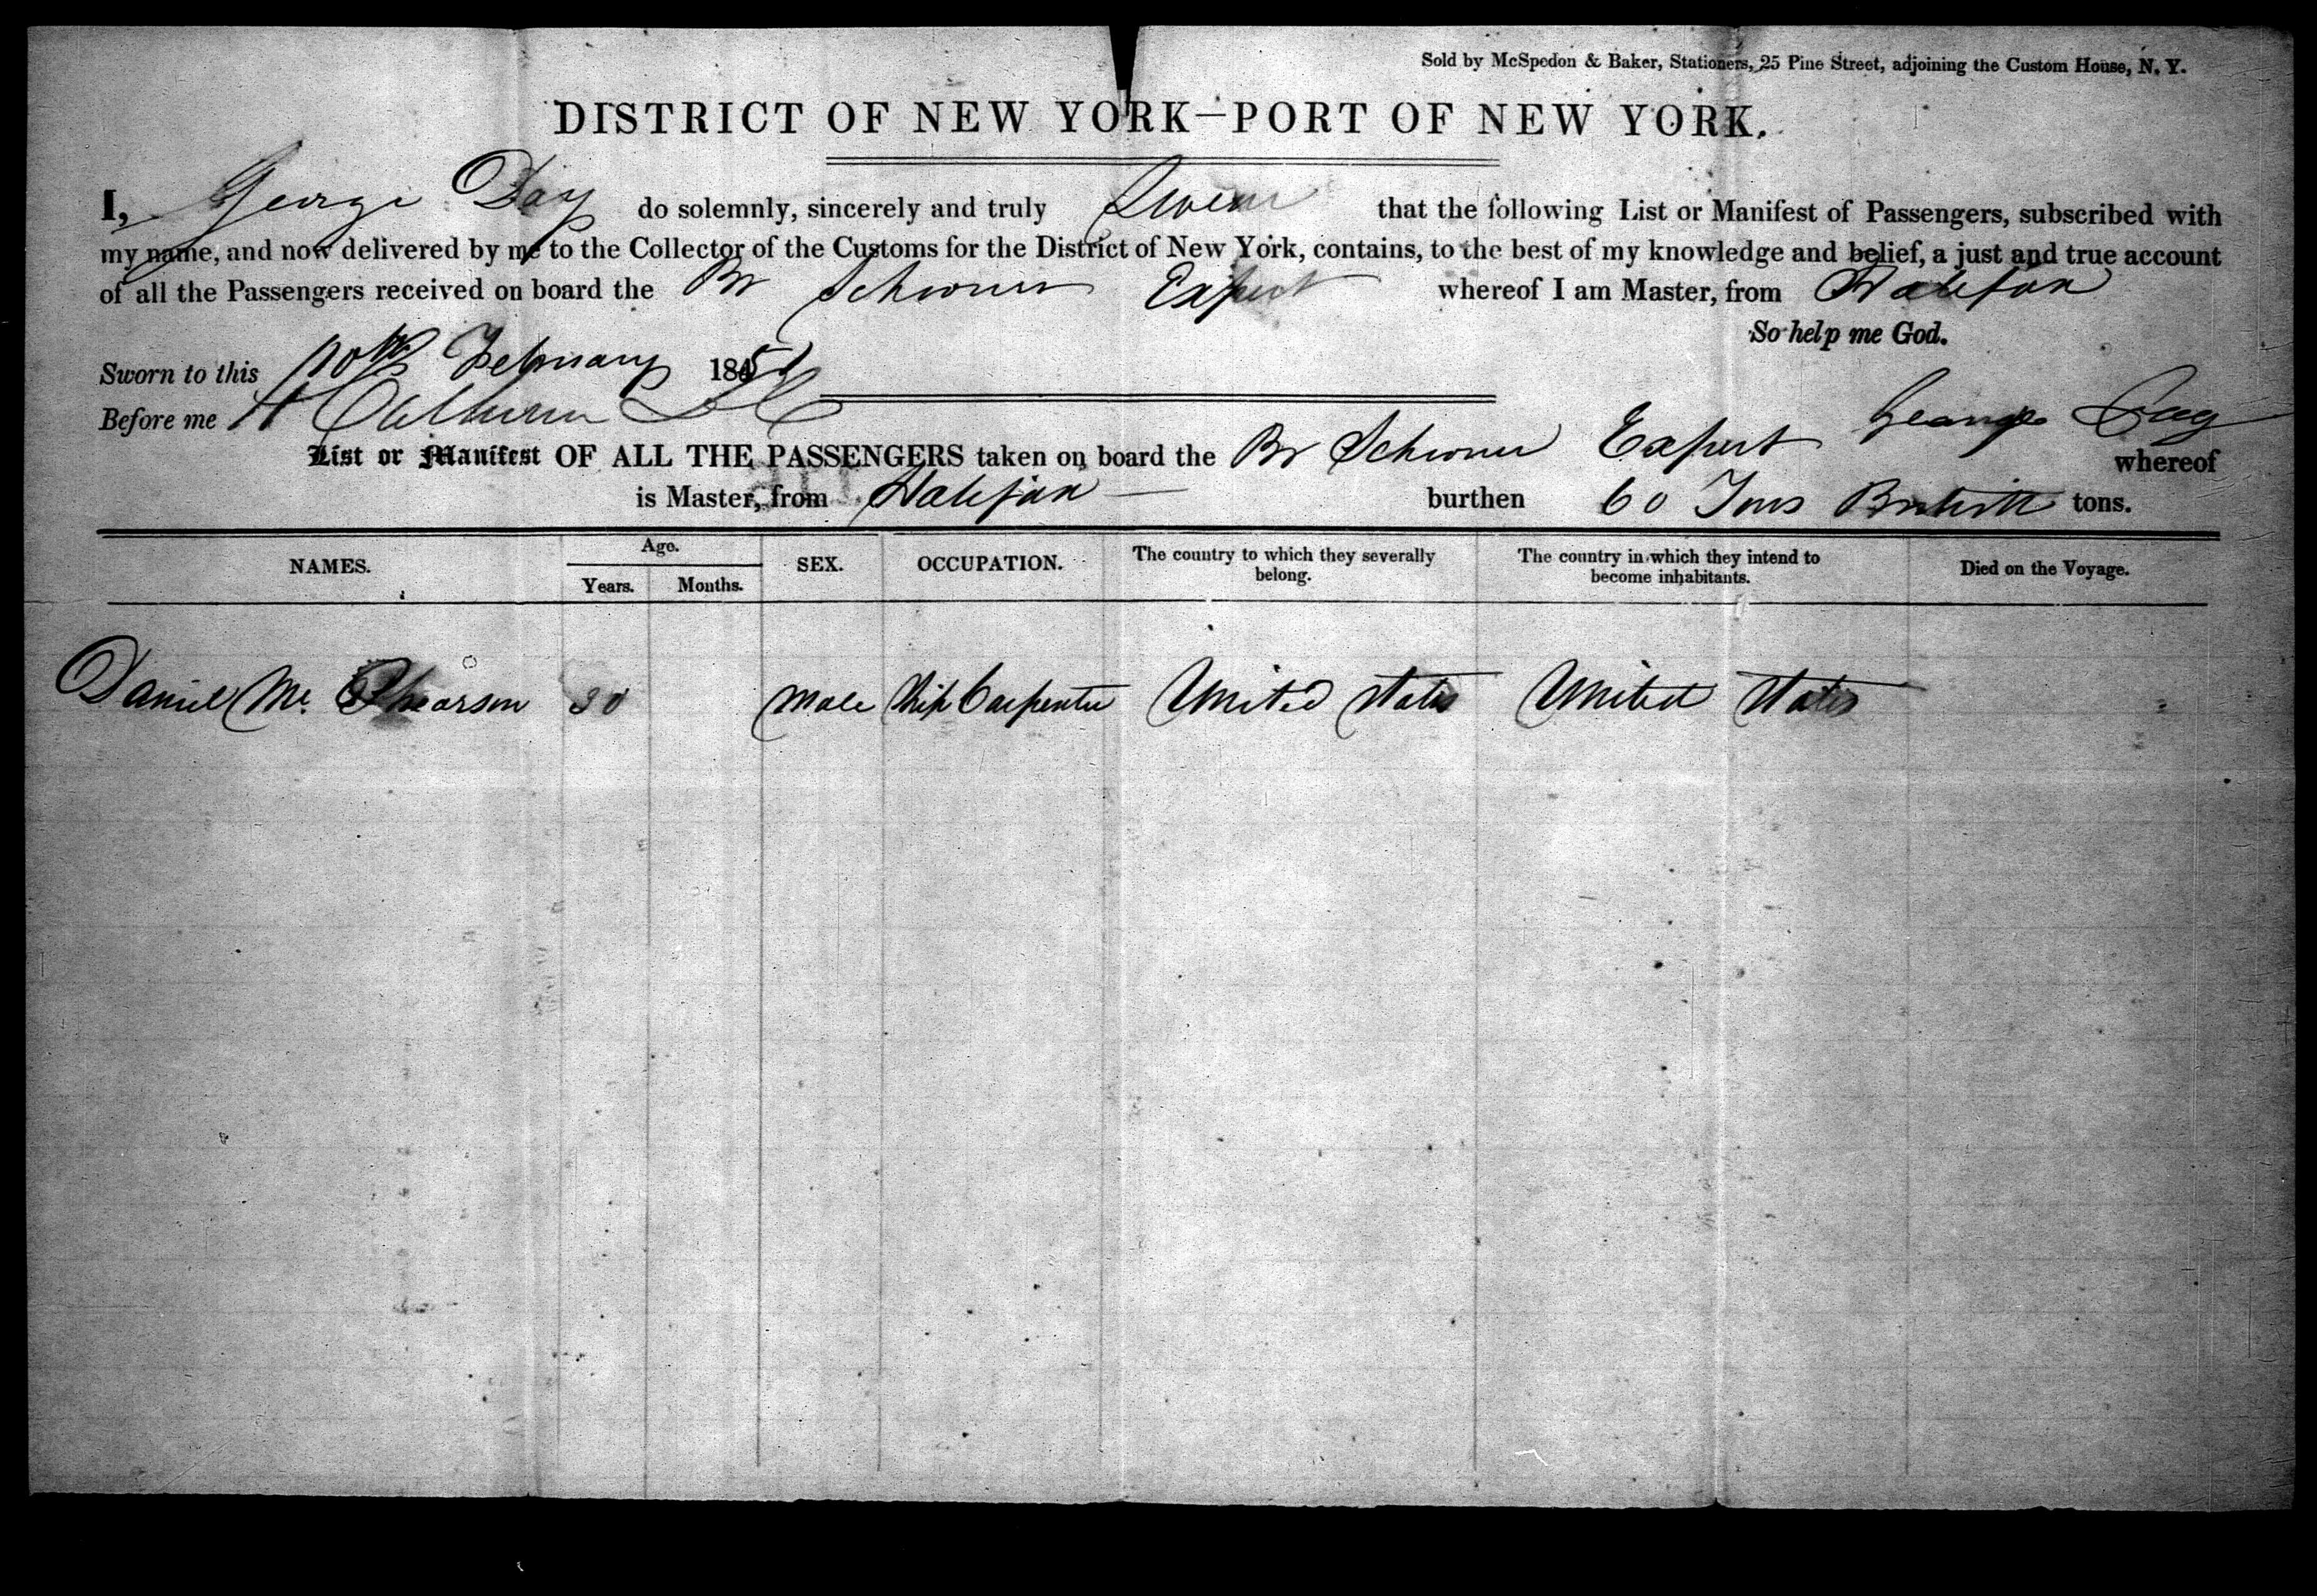 Sold by McSpedon & Baker, Stationers, 25 Pine Street, adjoining the Custom House, N. Y.
DISTRICT OF NEW YORK—PORT OF NEW YORK.
I, George Day do solemnly, sincerely and truly Swear that the following List or Manifest of Passengers, subscribed with
my name, and now delivered by me to the Collector of the Customs for the District of New York, contains, to the best of my knowledge and belief, a just and true account
of all the Passengers received on board the Br Schooner Expert whereof I am Master, from Halifax
So help me God.
Sworn to this 10th February 1851
Before me H
George Day
List or Manifest OF ALL THE PASSENGERS taken on board the Br Schooner Expert whereof
is Master, from Halifax — burthen 60 Tons British tons.
NAMES. Age. Years. Months. SEX. OCCUPATION. The country to which they severally belong. The country in which they intend to become inhabitants. Died on the Voyage.
Daniel Mc Phearson 30 Male Ship Carpenter United States United States